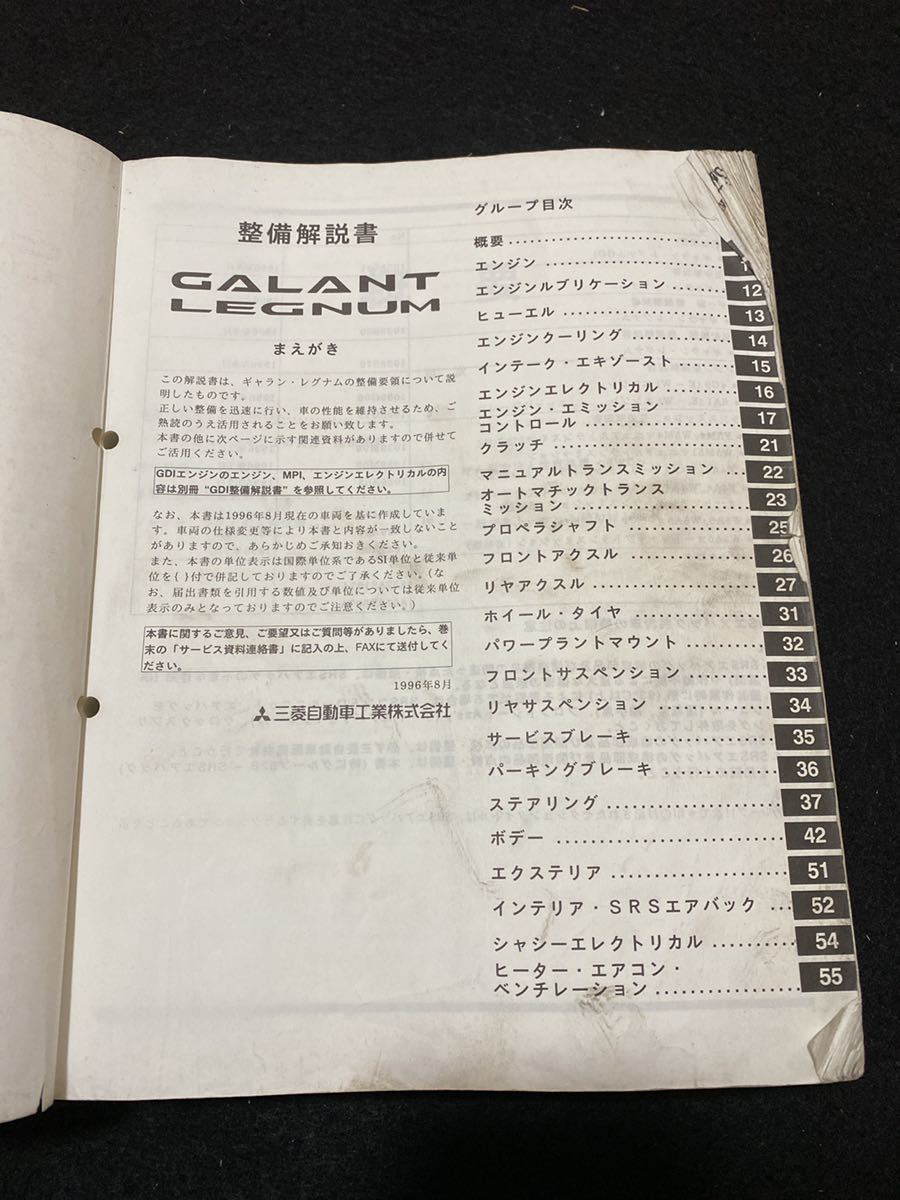 整備解説書
GALANT
LEGNUM
まえがき
この解説書は、ギャラン・レグナムの整備要領について説
明したものです。
正しい整備を迅速に行い、車の性能を維持させるため、ご
熟読のうえ活用されることをお願い致します。
本書の他に次ページに示す関連資料がありますので併せて
ご活用ください。
GDIエンジンのエンジン、MPI、エンジンエレクトリカルの内
容は別冊“GDI整備解説書”を参照してください。
なお、本書は1996年8月現在の車両を基に作成していま
す。車両の仕様変更等により本書と内容が一致しないこと
がありますので、あらかじめご承知おきください。
また、本書の単位表示は国際単位系であるSI単位と従来単
位を{ }付で併記しておりますのでご了承ください。(な
お、届出書類を引用する数値及び単位については従来単位
表示のみとなっておりますのでご注意ください。)
本書に関するご意見、ご要望又はご質問等がありましたら、巻
末の「サービス資料連絡書」に記入の上、FAXにて送付してく
ださい。
1996年8月
三菱自動車工業株式会社
グループ目次
概要
エンジン
エンジンルブリケーション 12
ヒューエル 13
エンジンクーリング 14
インテーク・エキゾースト 15
エンジンエレクトリカル 16
エンジン・エミッション
コントロール 17
クラッチ 21
マニュアルトランスミッション 22
オートマチックトランス
ミッション 23
プロペラシャフト 25
フロントアクスル 26
リヤアクスル 27
ホイール・タイヤ 31
パワープラントマウント 32
フロントサスペンション 33
リヤサスペンション 34
サービスブレーキ 35
パーキングブレーキ 36
ステアリング 37
ボデー 42
エクステリア 51
インテリア・SRSエアバック 52
シャシーエレクトリカル 54
ヒーター・エアコン・
ベンチレーション 55